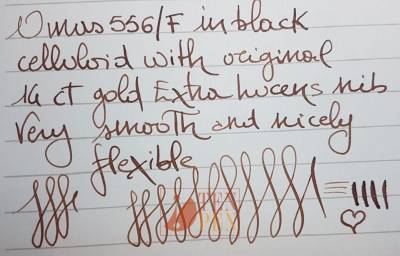 Omas 556/F in black
celluloid with original
14 ct gold Extra Lucens nib
Very smooth and nicely
flexible
TEN
PEN